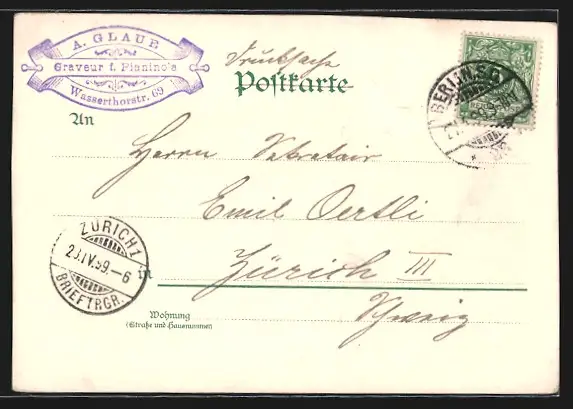 A. GLAUE
Graveur f. Pianino's
Wasserthorstr. 69
Drucksache
Postkarte
BERLIN S.O.
An
Herrn Sekretair
Emil Oertli
in Zürich III
Schweiz
ZÜRICH 1
23.IV.99.-6
BRIEFTRGR.
Wohnung
(Straße und Hausnummer)